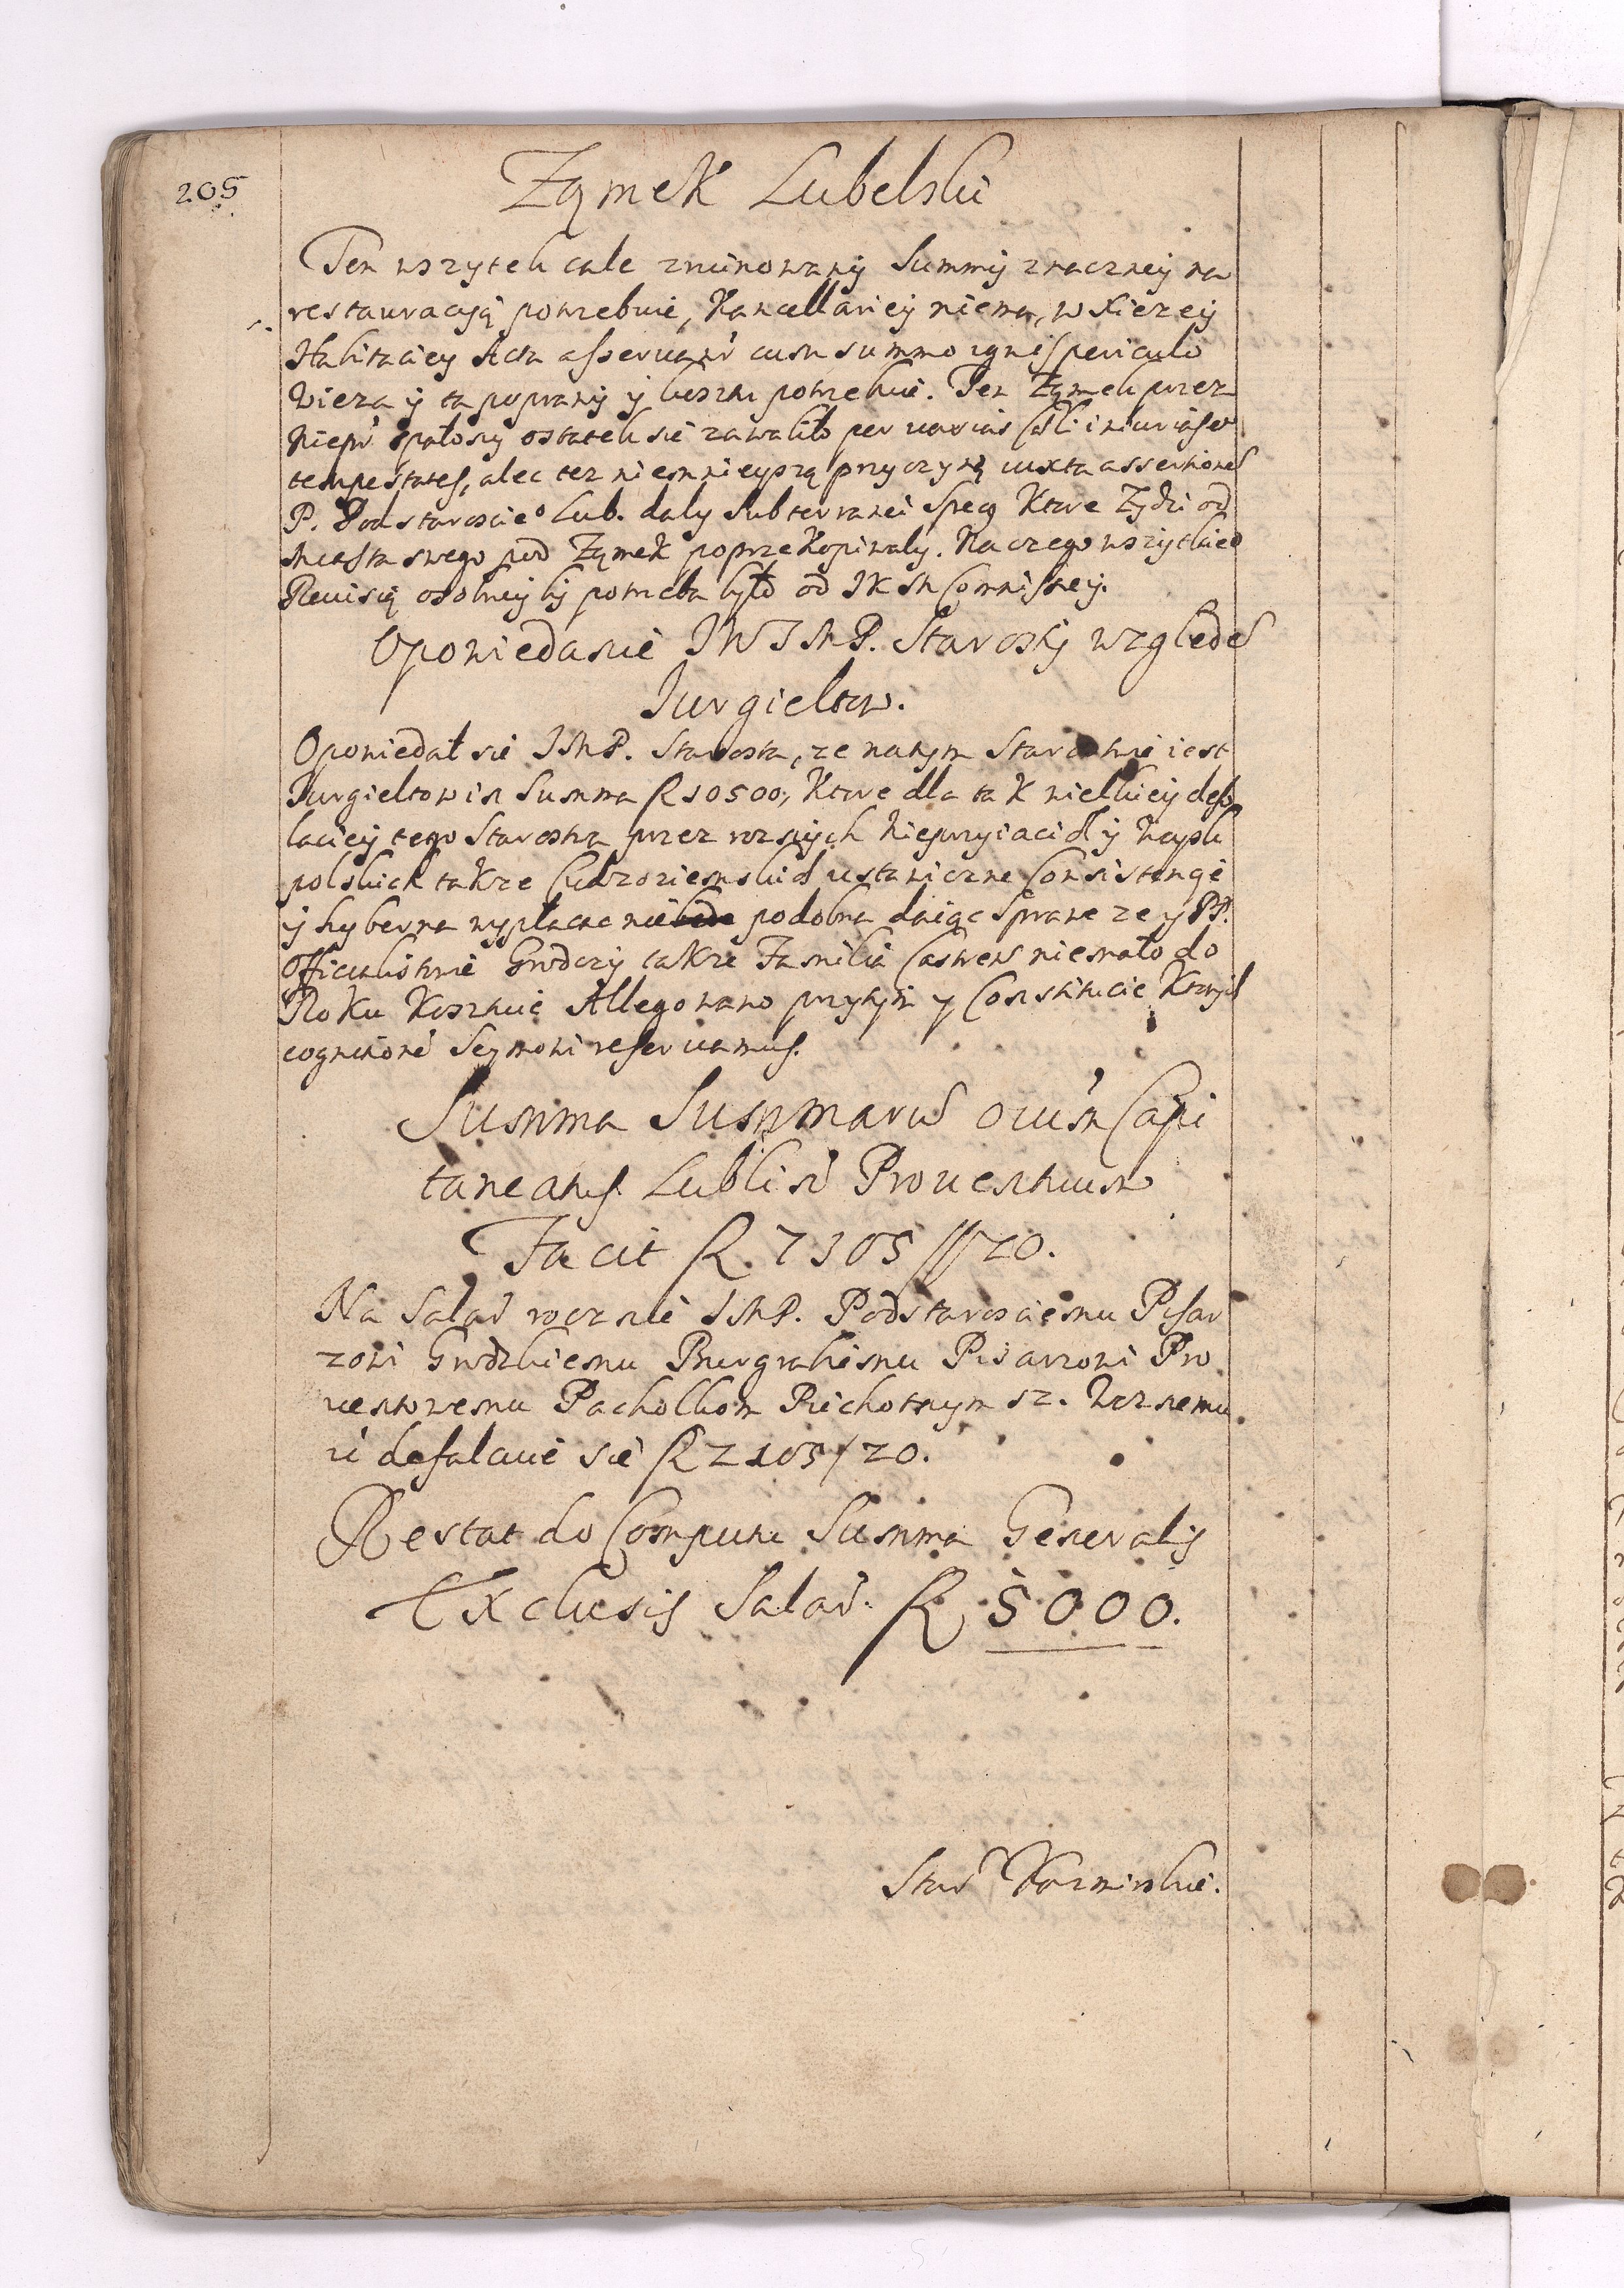 205
Ząmek Lubelski
Ten wszytek cale zruinowany Summy znaczney na
restauracyą potrzebuie, Kancellariey niema, w Xiezey
Habitaciey Acta asseruant cum summo ignis periculo
Wieza y ta poprawy y kosztu potrzebuie. Ten Ząmek przez
Niepr spalony ostatek sie zawaliło per varias cæli iniurias et
tempestates, alec tez niemnieyszą przyczynę iuxta assertiones
P. Podstaroscieo Lub. daly Subterranei Specus Ktore Zydzi od
Miasta swego pod Ząmek poprzekopiwaly. Na czego wszytkieo
Reuisią osobney by potrzeba było od IKM Commissiey.
Opowiedanie IWIMP. Starosty względem
Iurgieltow.
Opowiedał sie IMP. Starosta, ze natym Starostwie iest
Iurgieltowin Summa R 10500, Ktore dla tak wielkiey deso
laciey tego Starostwa przez roznych Nieprzyiacioł y Woysk
polskich takze Cudzoziemskich ustawiczne Consistencye
y hyberna wypłacac nie podobna daiąc Sprawe ze y PP.
Officialistowie Grodzcy takze Familia Castren niemało do
Roku Kosztuie Allegowano przytym y Constitucie Ktorych
cognitione Seymowi reseruamus.
Summa Summarum oium Capi
taneatus Lublin Prouentuum
Facit R. 7105 // 20.
Na Salar rocznie IMP. Podstarosciemu Pisar
zowi Grodzkiemu Burgrabiemu Pisarzowi Pro
uentowemu Pachołkom Piechotnym sz. Woznemu
defalcuie sie R 2105/20.
Restat do Computu Summa Generalis
Exclusis Salar. R 5000.
Stan Karminskie.